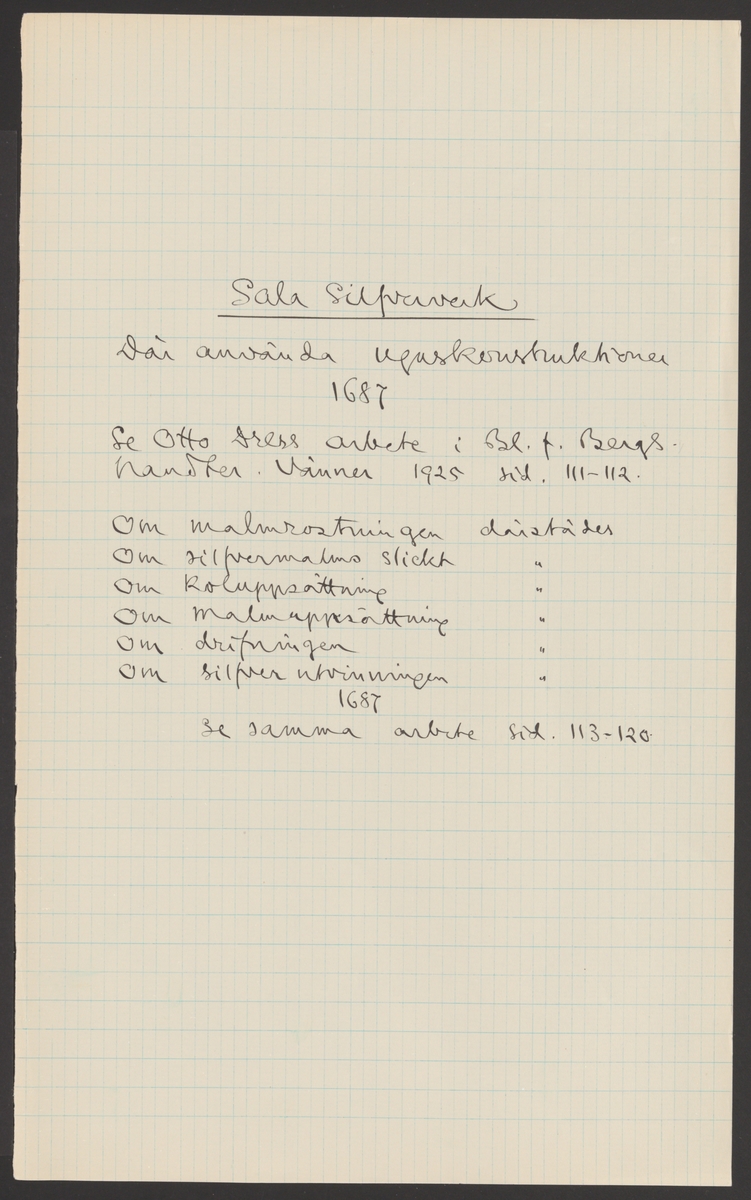 Sala Silfververk
Där använda ugnskonstruktioner
1687
Se Otto Dress arbete i Bl. f. Bergs-
handter. Vänner 1925 sid. 111-112.
Om malmrostningen därstädes
Om silfvermalms slickt "
Om Koluppsättning "
Om Malmuppsättning "
Om drifningen "
Om silfver utvinningen "
1687
Se samma arbete sid. 113-120.